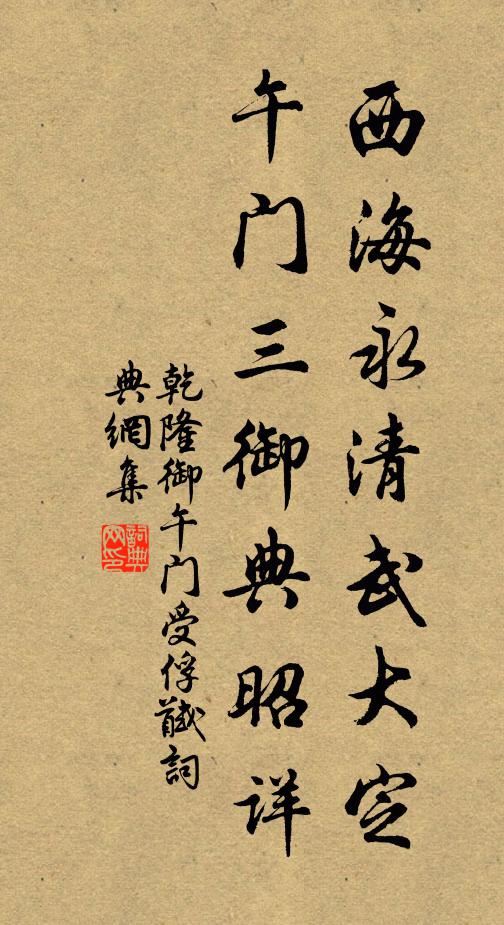 西海永清武大定
午门三御典昭详
乾隆御午门受俘馘詞
典網集
詞典网印